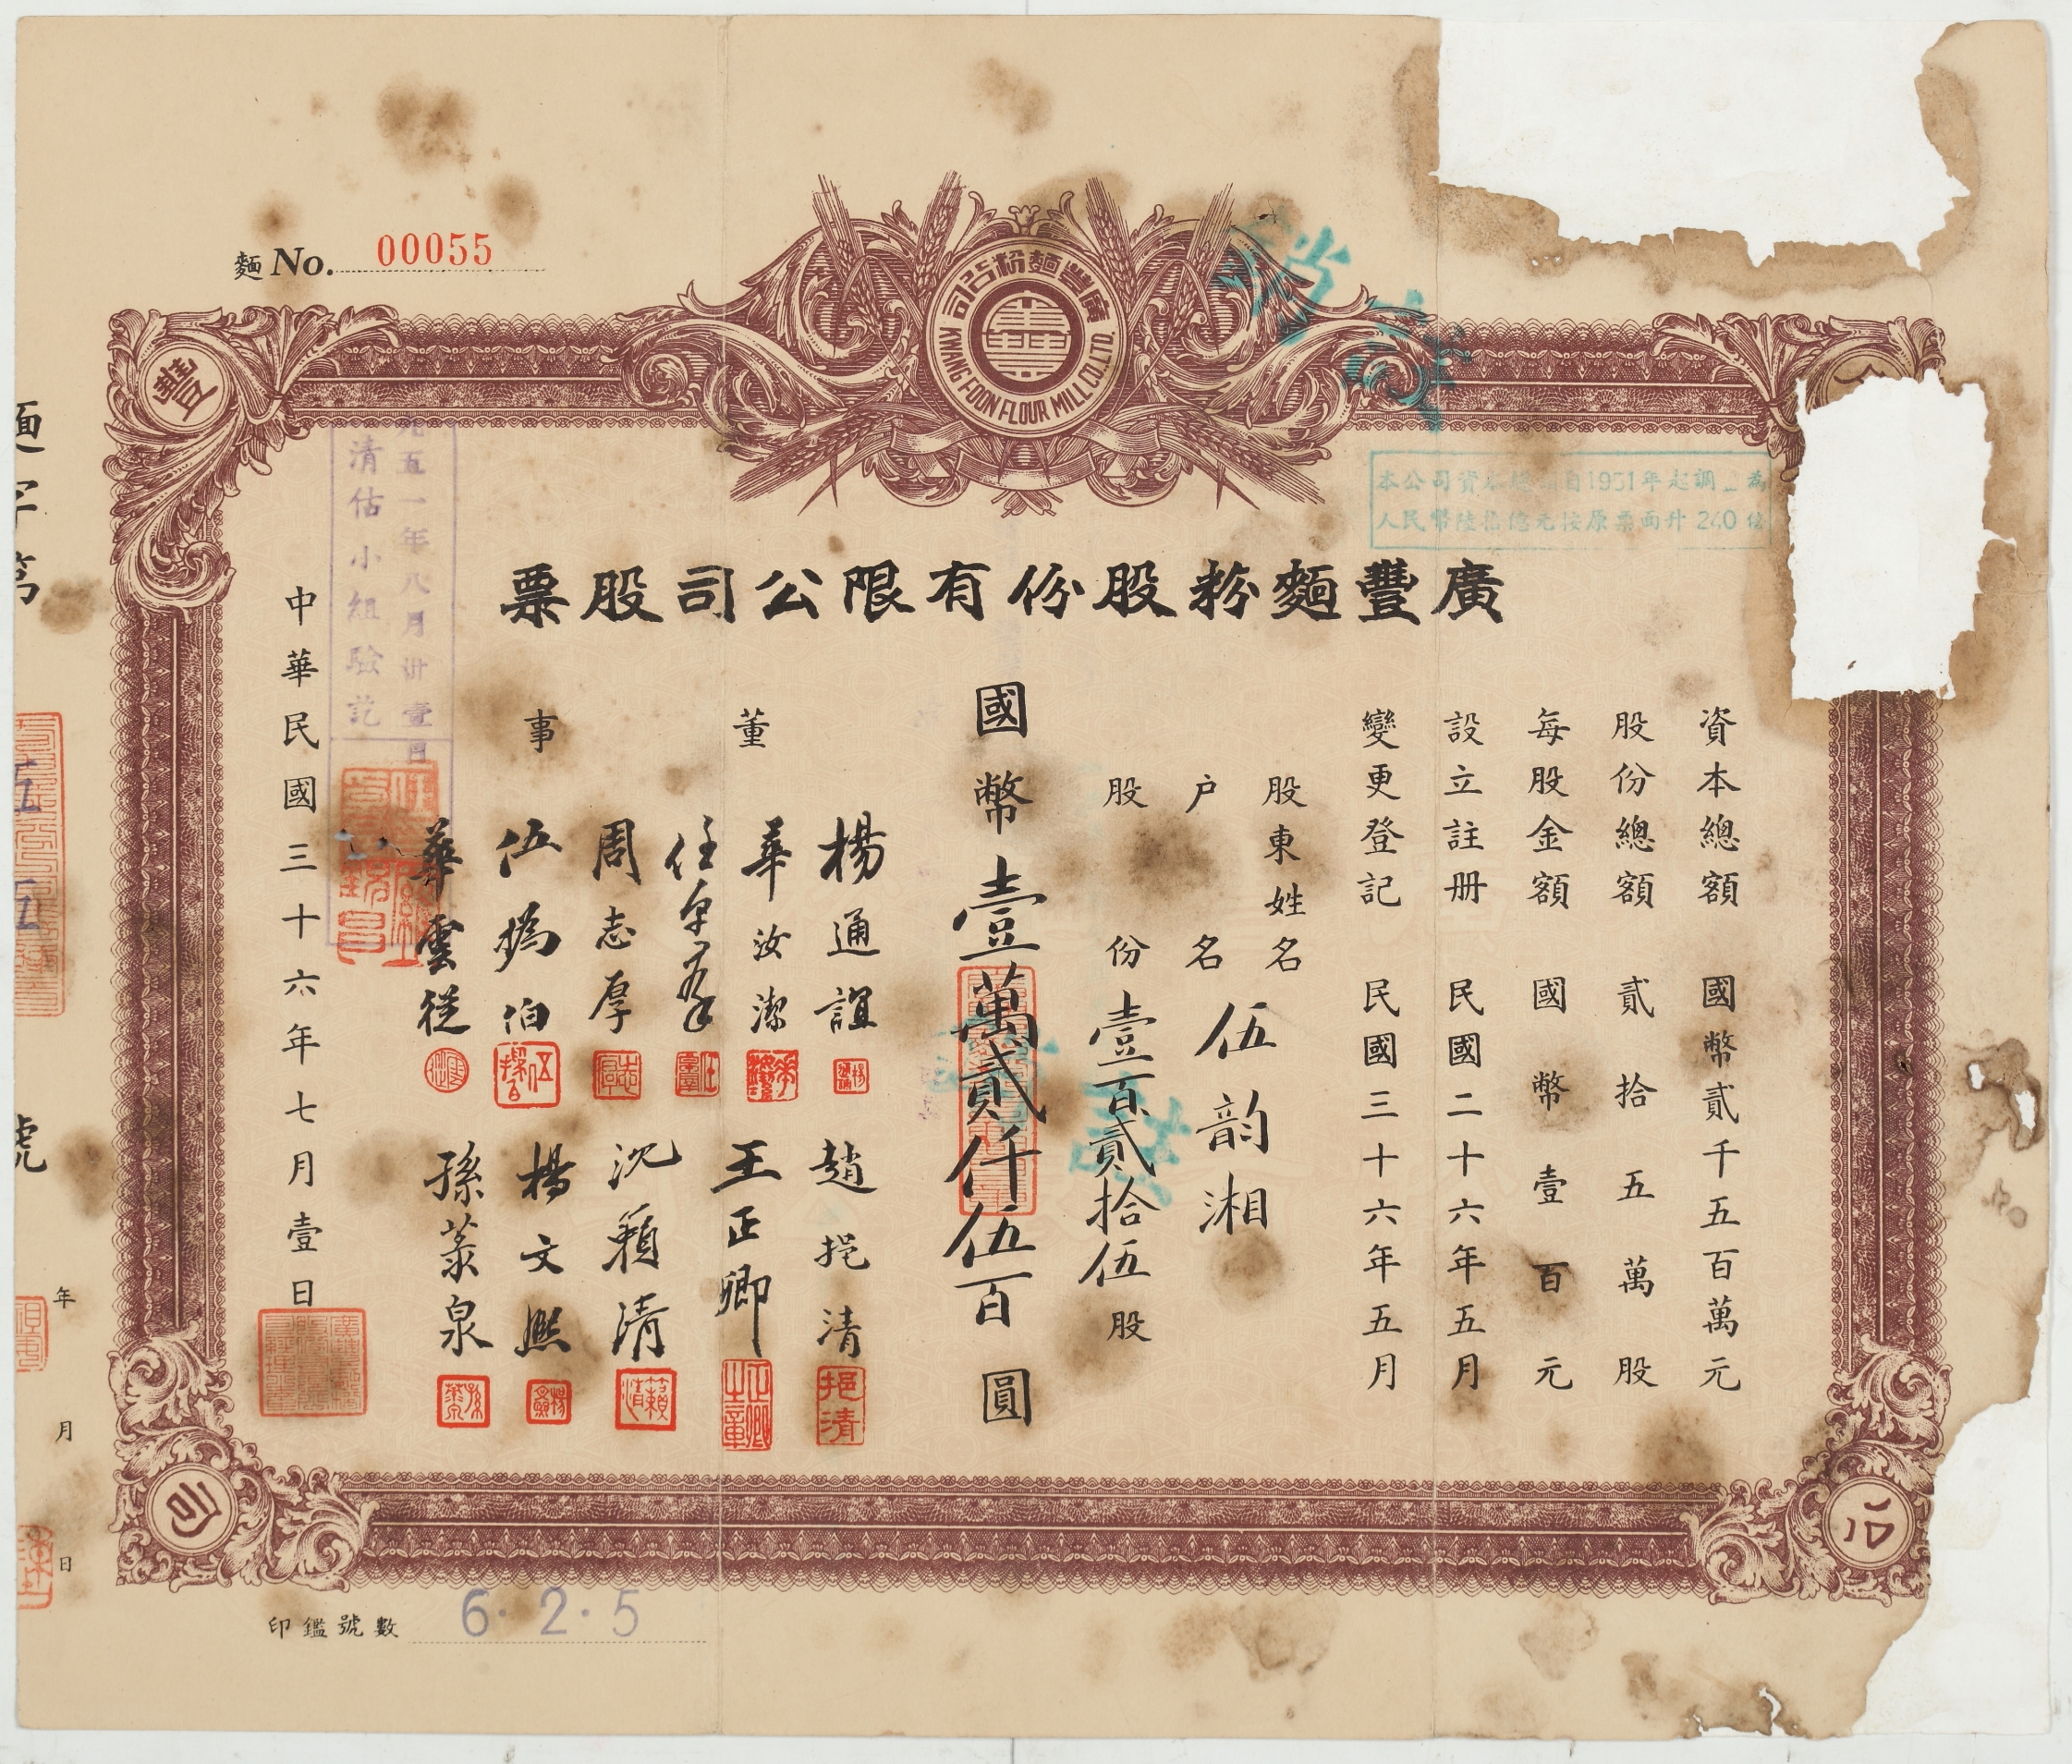 麵 No. 00055
廣豐麵粉公司
KWANG FOON FLOUR MILL CO., LTD.
豐
公
司
本公司資本總額自1951年起調 為
人民幣陸拾億元按原票面升240倍
廣豐麵粉股份有限公司股票
資本總額 國幣貳千五百萬元
股份總額 貳拾五萬股
每股金額 國幣壹百元
設立註册 民國二十六年五月
變更登記 民國三十六年五月
股東姓名
户名 伍韵湘
股份 壹百貳拾伍股
國幣壹萬貳仟伍百圓
董事
楊通誼
華汝潔
周志厚
華雲從
趙挹清
王正卿
沈籟清
楊文熙
中華民國三十六年七月壹日
九五一年八月卅壹日
清估小組驗訖
麵字第
五
五
號
年 月 日
印鑑號數 6·2·5